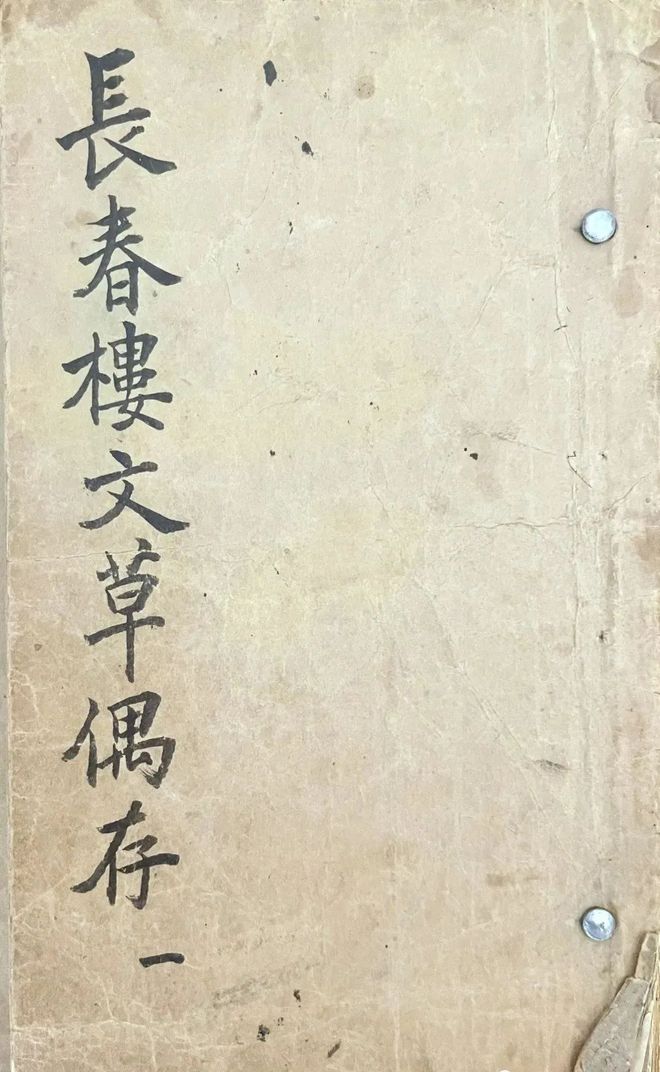 長春樓文草偶存 一